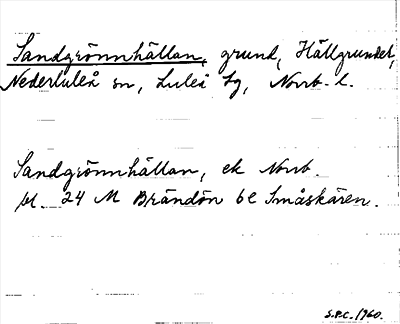 Sandgrönnhällan, grund, Hällgrundet,
Nederluleå sn, Luleå tg, Norrb. l.
Sandgrönnhällan, ek Norrb.
bl. 24 M Brändön 6e Småskären.
S.P.C. 1960.